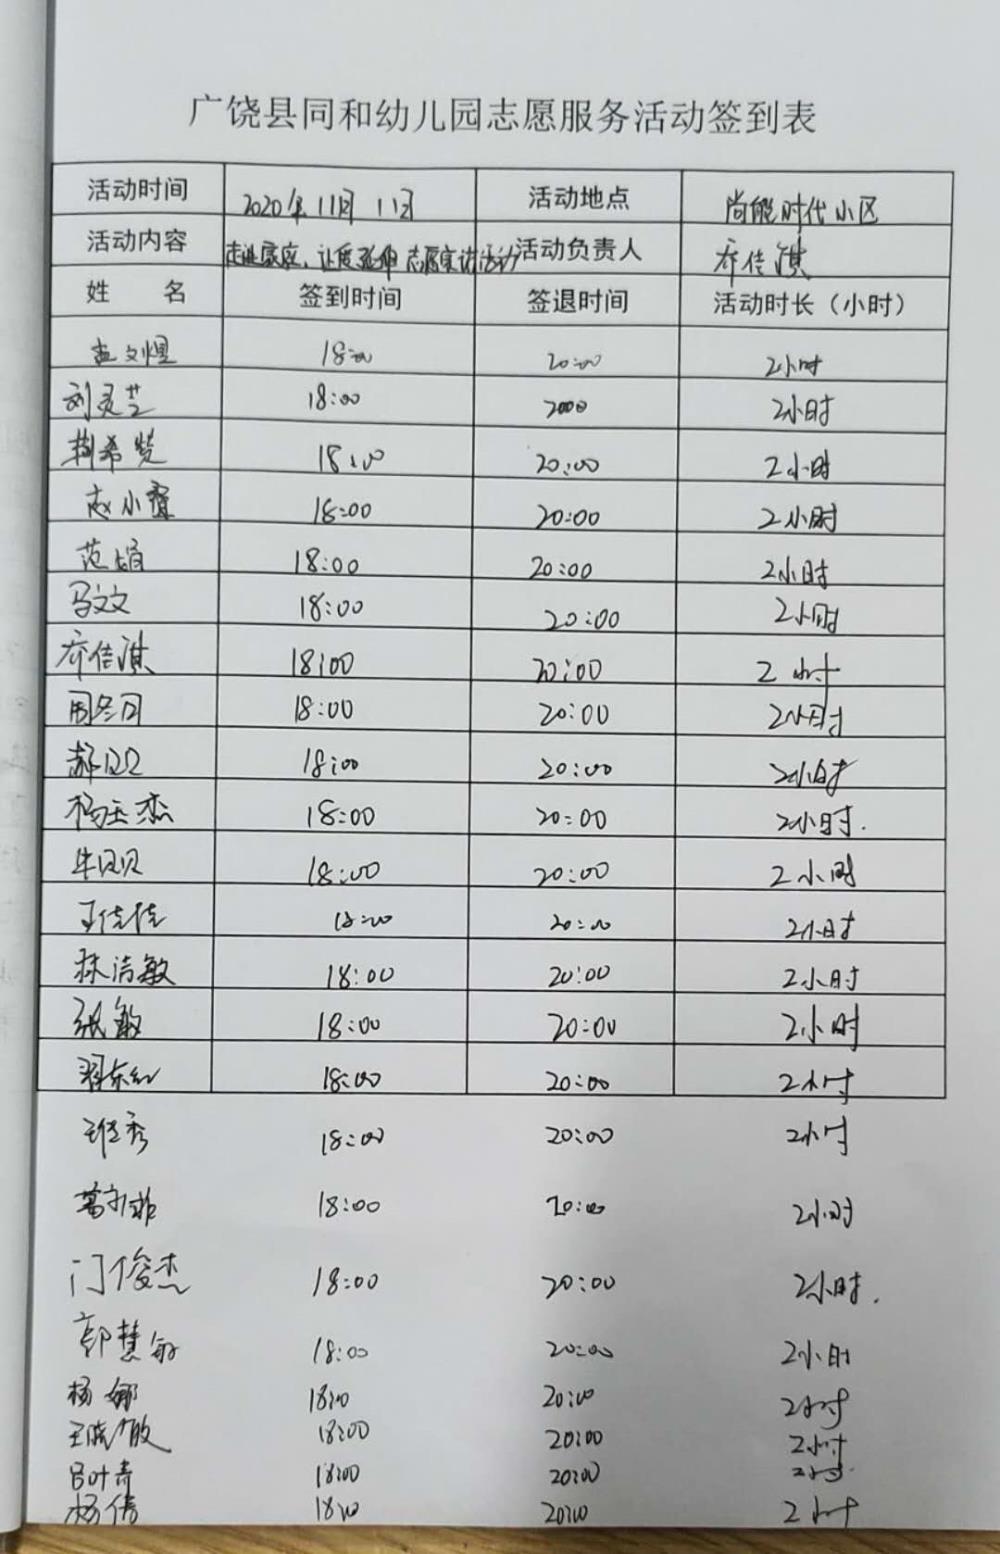 广饶县同和幼儿园志愿服务活动签到表
活动时间 2020年11月11日 活动地点 尚能时代小区
活动内容 走进家庭,让爱延伸 志愿家访活动 活动负责人 乔佳淇
姓 名 签到时间 签退时间 活动时长（小时）
孟文煜 18:00 20:00 2小时
刘灵芝 18:00 2000 2小时
荆希 18:00 20:00 2小时
赵小霞 18:00 20:00 2小时
范娟 18:00 20:00 2小时
马文文 18:00 20:00 2小时
乔佳淇 18:00 20:00 2小时
周冬 18:00 20:00 2小时
郝 18:00 20:00 2小时
杨玉杰 18:00 20:00 2小时.
牛贝贝 18:00 20:00 2小时
王佳佳 18:00 20:00 2小时
林洁敏 18:00 20:00 2小时
张敏 18:00 20:00 2小时
翟东红 18:00 20:00 2小时
班秀 18:00 20:00 2小时
葛 18:00 20:00 2小时
门俊杰 18:00 20:00 2小时.
郭慧敏 18:00 20:00 2小时
杨娜 18:00 20:00 2小时
王晓敏 18:00 20:00 2小时
吕叶青 18:00 20:00 2小时
杨倩 18:00 20:00 2小时